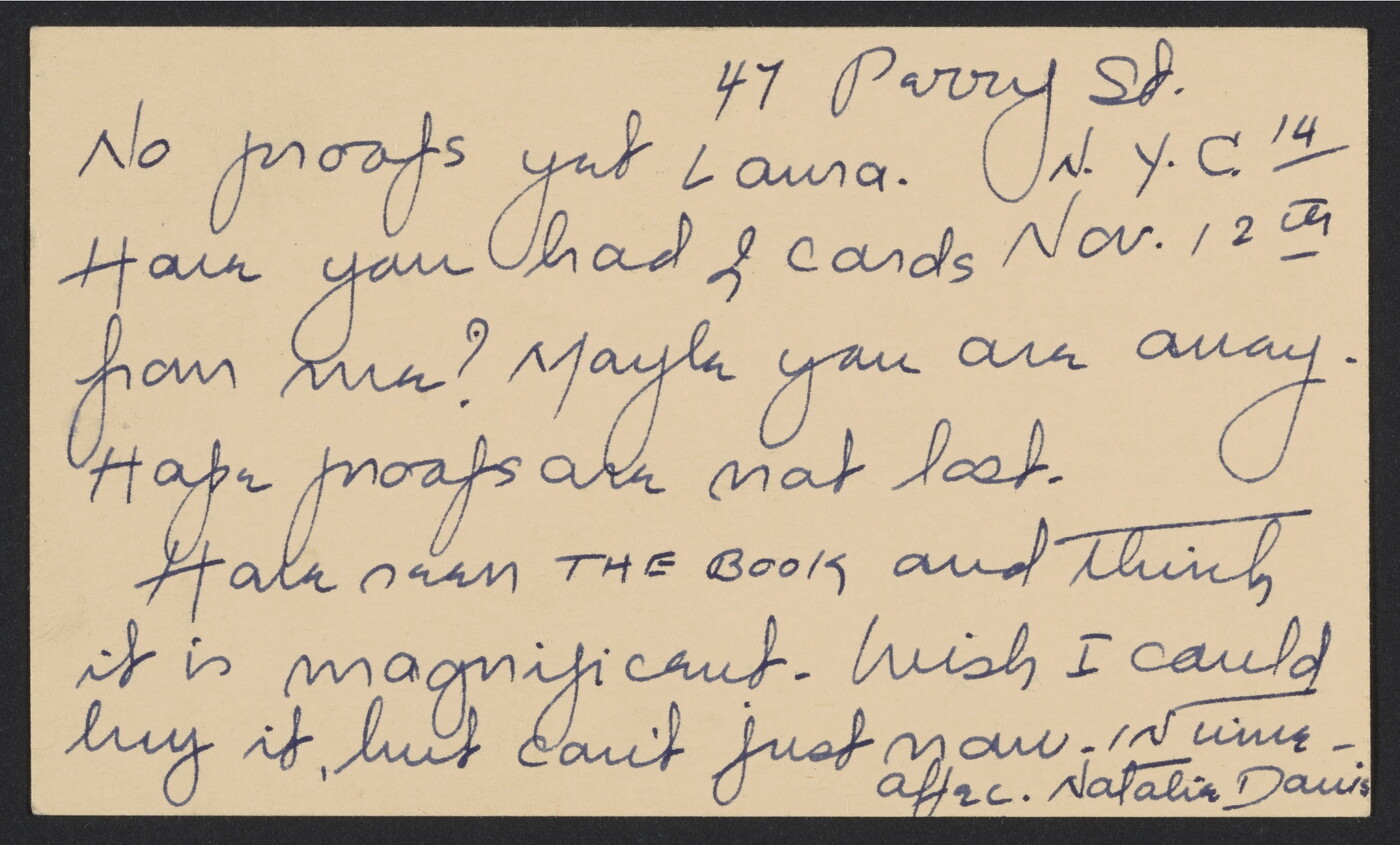 47 Perry St.
N.Y.C. 14
Nov. 12th
No proofs yet Laura.
Have you had 2 cards
from me? Maybe you are away.
Hope proofs are not lost.
Have seen THE BOOK and think
it is magnificent. Wish I could
buy it, but can't just now.
affec. Natalie Davis